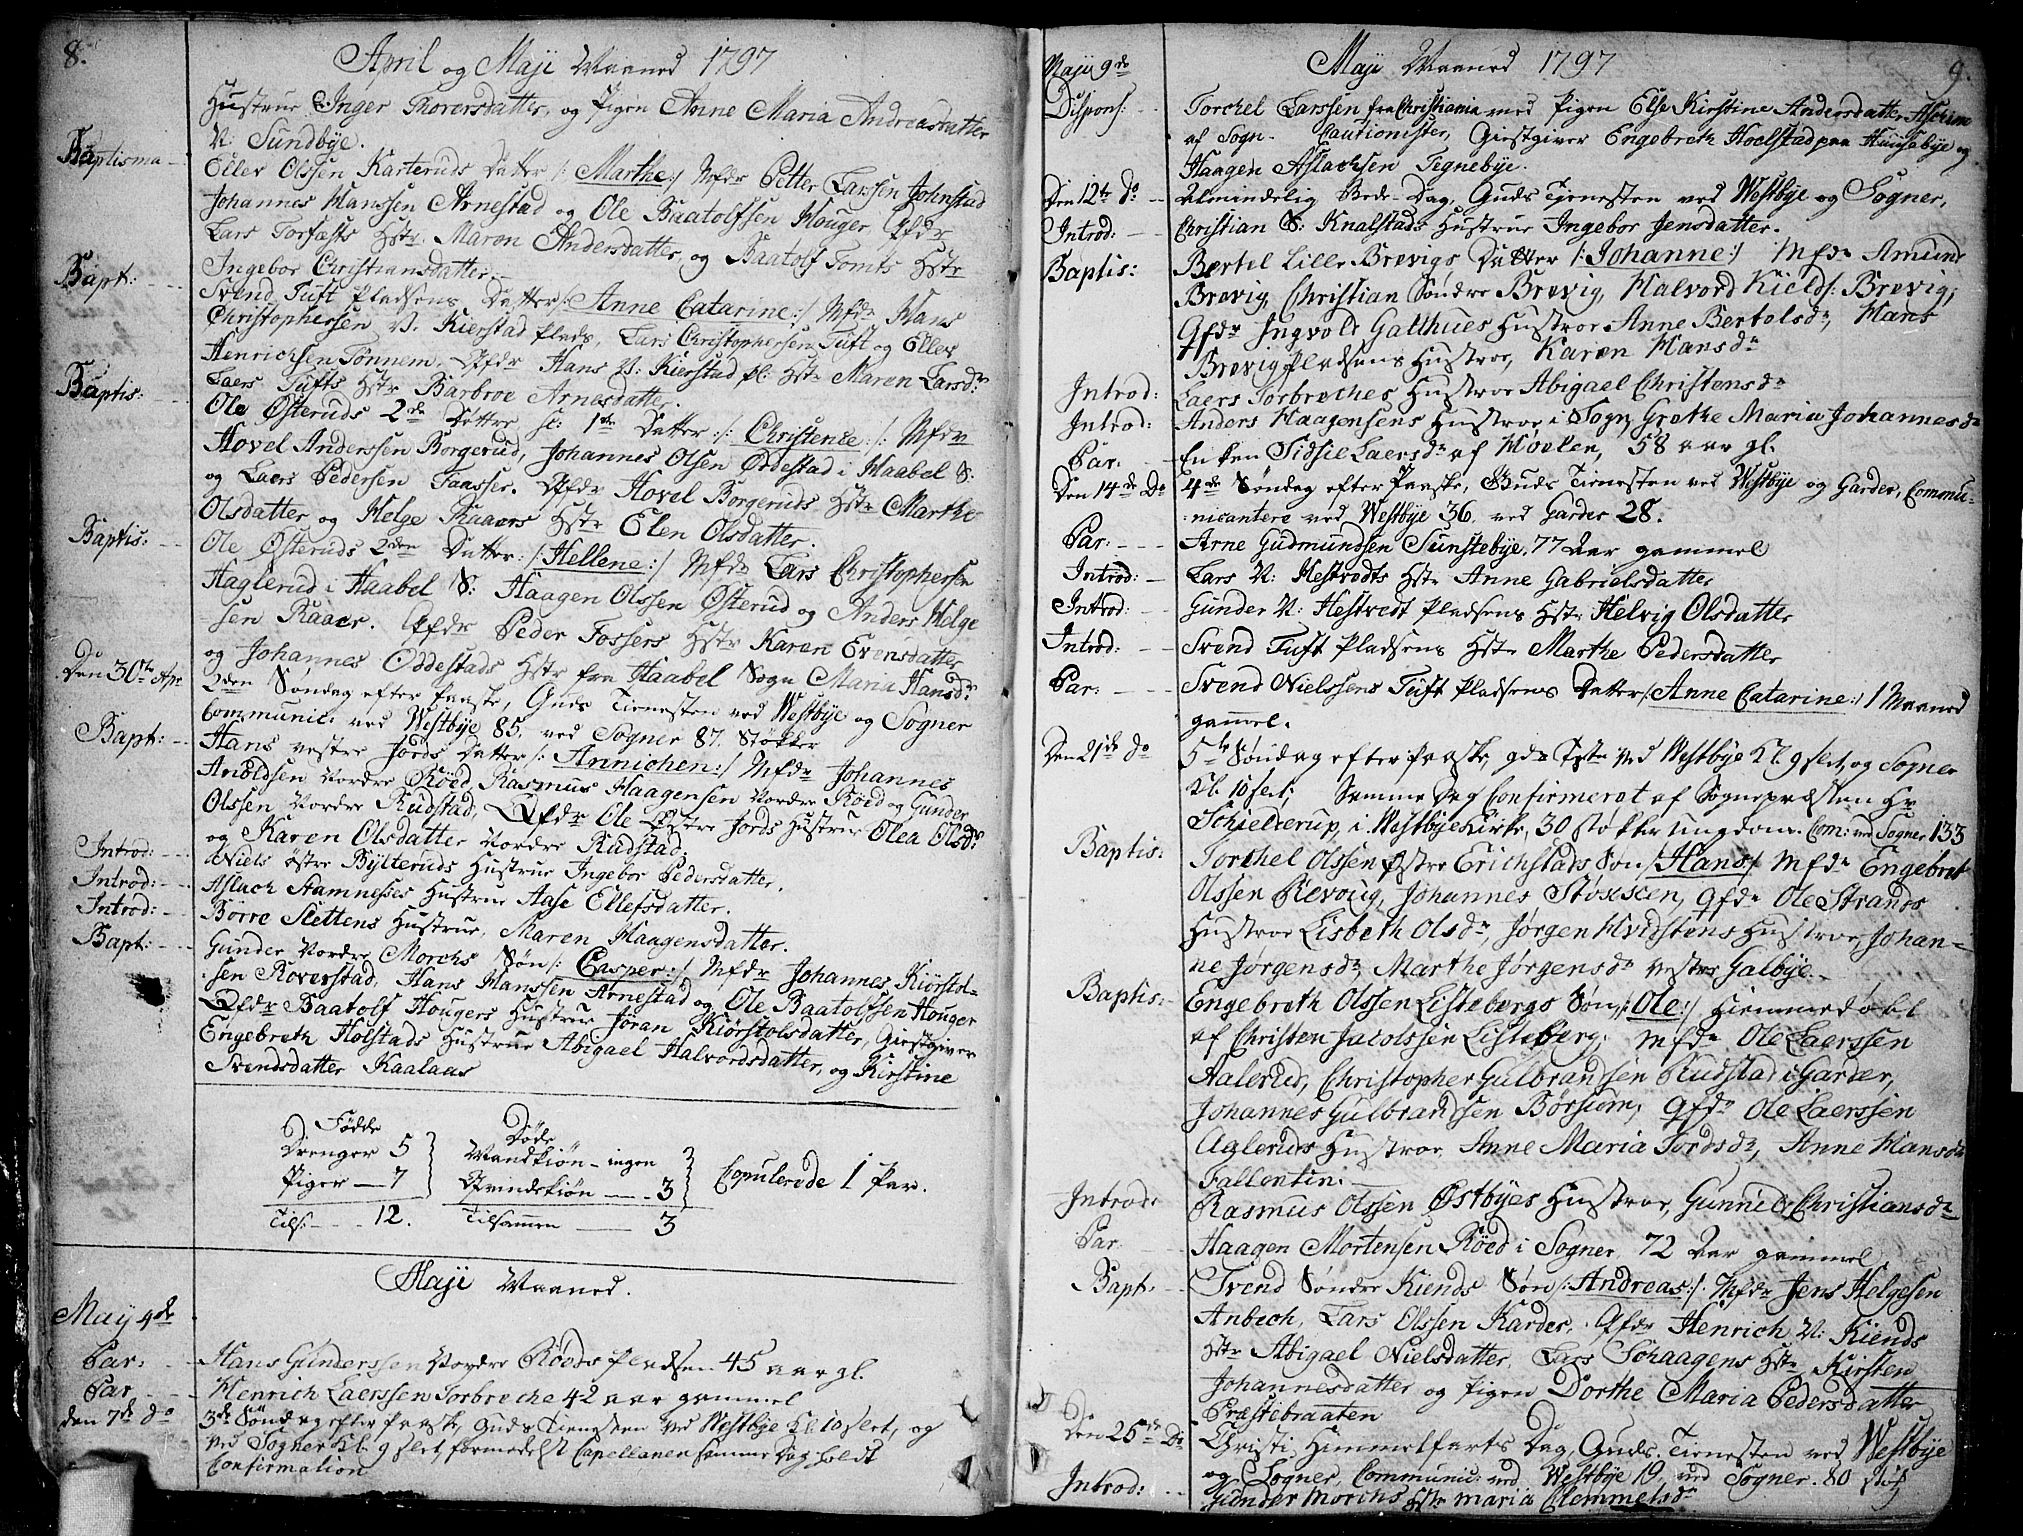 8.
April og Maji Maaned 1797
Hustrue Inger Thorersdatter, og Pigen Anne Maria Andreasdatter
N: Sundbye.
Baptisma Ellev Olssen Karteruds Datter /: Marthe :/ Mfdr Petter Larsen Johnstad
Johannes Hanssen Arnestad og Ole Baatolfsen Houger, Qfdr
Lars Torfasts Hstr. Maren Andersdatter, og Baatolf Tomts Hstr
Ingebor Christiansdatter.
Bapt: Svend Tuft Pladsens Datter /: Anne Catarine :/ Mfdr Hans
Christophersen N: Kierstad Plads, Lars Christophersen Tuft og Ellev
Henrichsen Tønnem, Qfdr Hans N: Kierstad pl: Hstr Maren Larsdr
Laers Tufts Hstr Barbroe Arnesdatter.
Baptis: Ole Østeruds 2de Døttre, sc: 1ste Datter /: Christence :/ Mfdr
Hovel Anderssen Borgerud, Johannes Olsen Oddestad i Haabel S:
og Laers Pedersen Faasser. Qfdr Hovel Borgeruds Hstr Marthe
Olsdatter og Helge Raaers Hstr Elen Olsdatter.
Baptis: Ole Østeruds 2den Datter /: Hellene :/ Mfdr Lars Christophersen
Haglerud i Haabel S: Haagen Olssen Østerud og Anders Helge
sen Raaer. Qfdr Peder Fossers Hstr Karen Evensdatter
og Johannes Oddestads Hstr fra Haabel Sogn Maria Hansdr
Den 30te Apr 2den Søndag efter Paaske, Guds Tienesten ved Westbye og Sogner
Communic: ved Westbye 85, ved Sogner 87. Støkker
Bapt: Hans vestre Jords Datter /: Annichen :/ Mfdr Johannes
Arildsen Nordre Røed, Rasmus Haagensen Nordre Røed og Gunder
Olssen Nordre Rudstad, Qfdr Ole Østre Jords Hustrue Olea Olsdr
og Karen Olsdatter Nordre Rudstad.
Introd: Niels østre Bylteruds Hustrue Ingebor Pedersdatter.
Introd: Aslach Stamneses Hustrue Aase Ellefsdatter.
Introd: Børre Slettens Hustrue, Maren Haagensdatter.
Bapt: Gunder Nordre Morchs Søn /: Casper :/ Mfdr Johannes Kiørstol-
sen Roverstad, Hans Hanssen Arnestad og Ole Baatolfssen Houger
Qfdr Baatolf Hougers Hustrue Joran Kiørstolsdatter, Giestgiver
Engebreth Holstads Hustrue Abigael Halvordsdatter, og Kirstine
Svendsdatter Kaalaas
Fødde Døde
Drenger 5 Mandkiøn - ingen
Piger 7 Qvindekiøn 3 Copulerede 1 Par.
Tils: 12. Tilsammen 3
Maji Maaned.
May 4de
Par: Hans Gunderssen Nordre Røeds Pladsen 45 aar gl.
Par Henrich Laerssen Torbreche 42 aar gammel
den 7de do 3de Søndag efter Paaske, Guds Tienesten ved Westbye Kl. 10 slet, og
ved Sogner Kl. 9 slet, formedelst Capellanen samme Dag holdt
Confirmation
Maji Maaned 1797
9.
Maji 9de
Dispens: Torchel Larssen fra Christiania med Pigen Else Kirstine Andersdatter Aschim
af Sogn. Cautionister, Giestgiver Engebreth Hoelstad paa Huusebye og
Haagen Aslachsen Tegnebye.
Den 12te do Almindelig Bede-Dag, Guds Tienesten ved Westbye og Sogner,
Introd: Christian S: Knalstads Hustrue Ingebor Jensdatter.
Baptis: Bertel Lille Brevigs Datter /: Johanne :/ Mfdr Amund
Brevig, Christian Søndre Brevig, Halvord Kields: Brevig,
Qfdr Ingvold Galthues Hustroe Anne Bertelsdr, Hans
Brevig Pladsens Hustroe, Karen Hansdr
Introd: Laers Torbreches Hustroe Abigael Christensdr
Introd: Anders Haagensens Hustroe i Sogn, Grethe Maria Johannesdr
Par: Enken Sidsil Laersdr af Moelen, 58 aar gl.
Den 14de Do 4de Søndag efter Paaske, Guds Tienesten ved Westbye og Garder, Commu-
nicantere ved Westbye 36. ved Garder 28.
Par: Arne Gudmundsen Sunstebye, 77 Aar gammel
Introd: Lars N: Hestvedts Hstr Anne Gabrielsdatter
Introd: Gunder N: Hestvedt Pladsens Hstr Helvig Olsdatter
Introd: Svend Tuft Pladsens Hstr Marthe Pedersdatter
Par: Svend Nielssens Tuft Pladsens Datter /: Anne Catarine :/ 1 Maaned
gammel.
Den 21de do 5te Søndag efter Paaske, gds Tste ved Westbye Kl. 9 slet, og Sogner
Kl. 10 slet; Samme Dag Confirmeret af Sognepræsten Hr
Schielderup, i Westbye Kirke, 30 støkker ungdom. Com: ved Sogner 133
Baptis: Torchel Olssen Østre Erichstads Søn /: Hans :/ Mfdr Engebret
Olssen Revoug, Johannes Støxseen, Qfdr Ole Strands
Hustroe Lisbeth Olsdr, Jørgen Hvidstens Hustroe, Johan-
ne Jørgensdr, Marthe Jørgensdr vestre Galbye.
Baptis: Engebreth Olssen Listebergs Søn /: Ole :/ hiemmedøbt
af Christen Jacobssen Listeberg; Mfdr Ole Laerssen
Aalerud, Christopher Gulbrandsen Rudstad i Garder,
Johannes Gulbrandsen Børsum, Qfdr Ole Laerssen
Agleruds Hustroe, Anne Maria Tordsdr, Anne Hansdr
Fallentin.
Introd: Rasmus Olssen Østbyes Hustroe, Gunnild Christiansdr
Par Haagen Mortensen Røed i Sogner 72 Aar gammel
Bapt: Svend Søndre Kiends Søn /: Andreas :/ Mfdr Jens Helgesen
Anbech, Lars Olssen Karder, Qfdr Henrich N: Kiends
Hstr Abigael Nielsdatter, Lars Schaagens Hstr Kirsten
Johannesdatter og Pigen Dorthe Maria Pedersdatter
Præstebraaten
Den 25de Do Christi Himmelfarts Dag, Guds Tienesten ved Westbye
og Sogner, Communic: ved Westbye 19, ved Sogner. 80 støk
Introd: Gunder Morchs Hstr Maria Clemmetsdr